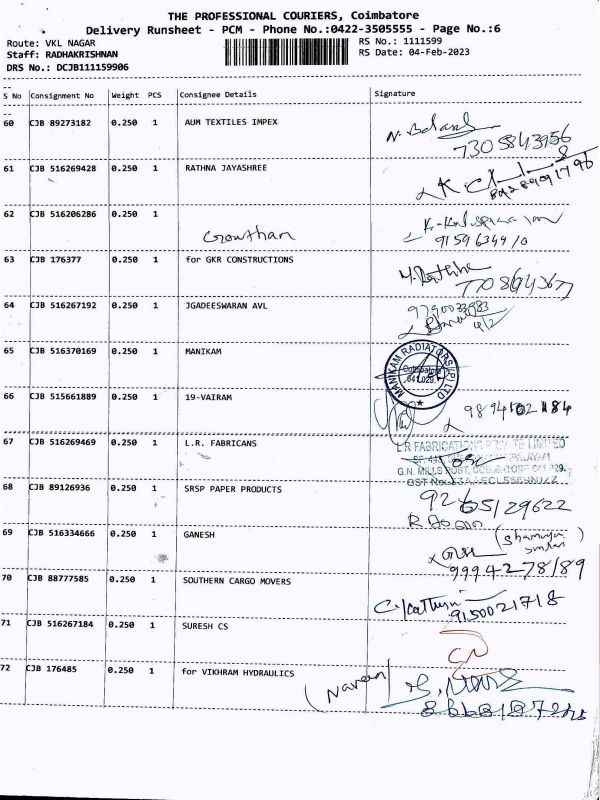 THE PROFESSIONAL COURIERS, Coimbatore
Delivery Runsheet - PCM - Phone No.:0422-3505555 - Page No.:6
Route: VKL NAGAR RS No.: 1111599
Staff: RADHAKRISHNAN RS Date: 04-Feb-2023
DRS No.: DCJB111159906
S No Consignment No Weight PCS Consignee Details Signature
60 CJB 89273182 0.250 1 AUM TEXTILES IMPEX
7305843956
61 CJB 516269428 0.250 1 RATHNA JAYASHREE
62 CJB 516206286 0.250 1
Gowthan
9159634910
63 CJB 176377 0.250 1 for GKR CONSTRUCTIONS
64 CJB 516267192 0.250 1 JGADEESWARAN AVL
9790033983
65 CJB 516370169 0.250 1 MANIKAM
MANIKAM RADIATORS (P) LTD
Coimbatore
641 029.
66 CJB 515661889 0.250 1 19-VAIRAM
67 CJB 516269469 0.250 1 L.R. FABRICANS
L.R FABRICATIONS PRIVATE LIMITED
G.N. MILLS POST, COIMBATORE 641 029.
68 CJB 89126936 0.250 1 SRSP PAPER PRODUCTS
9265129622
69 CJB 516334666 0.250 1 GANESH
9994278189
70 CJB 88777585 0.250 1 SOUTHERN CARGO MOVERS
9150021718
71 CJB 516267184 0.250 1 SURESH CS
72 CJB 176485 0.250 1 for VIKHRAM HYDRAULICS
(Naveen)